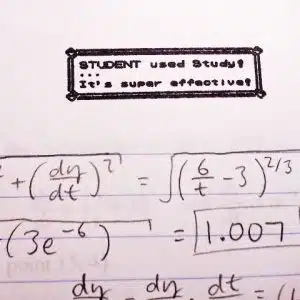 STUDENT used Study!
...
It's super effective!
² + (dy/dt)² = √(6/t - 3)^2/3
(3e^-6) = 1.007
dy dy . dt = (